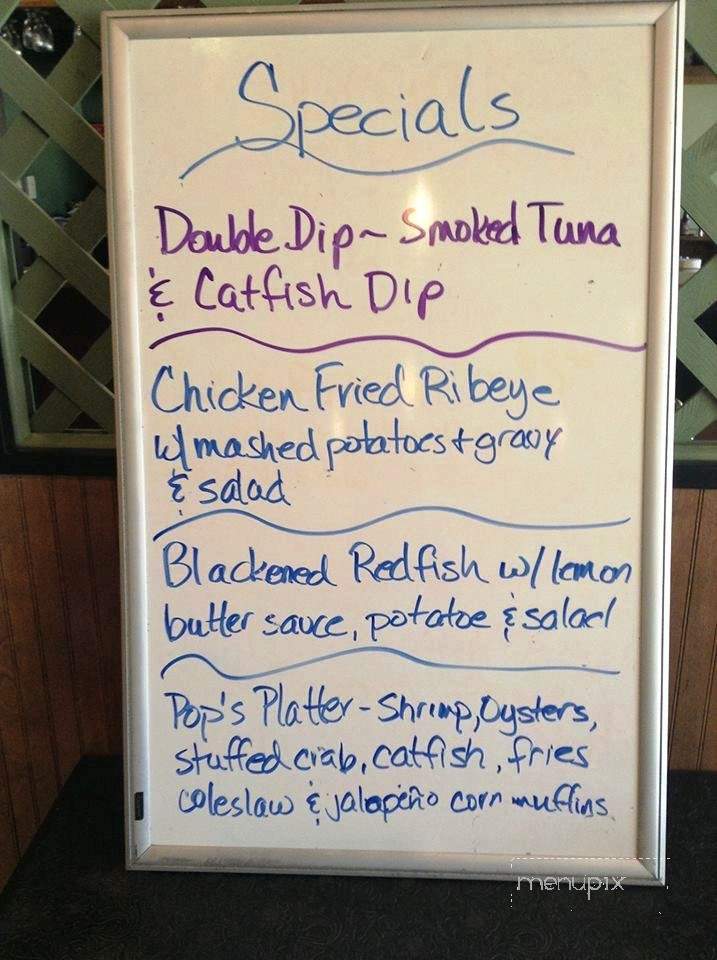 Specials
Double Dip~ Smoked Tuna
& Catfish Dip
Chicken Fried Ribeye
w/ mashed potatoes + gravy
& salad
Blackened Redfish w/ lemon
butter sauce, potatoe & salad
Pop's Platter - Shrimp, Oysters,
stuffed crab, catfish, fries
coleslaw & jalapeño corn muffins.
menupix